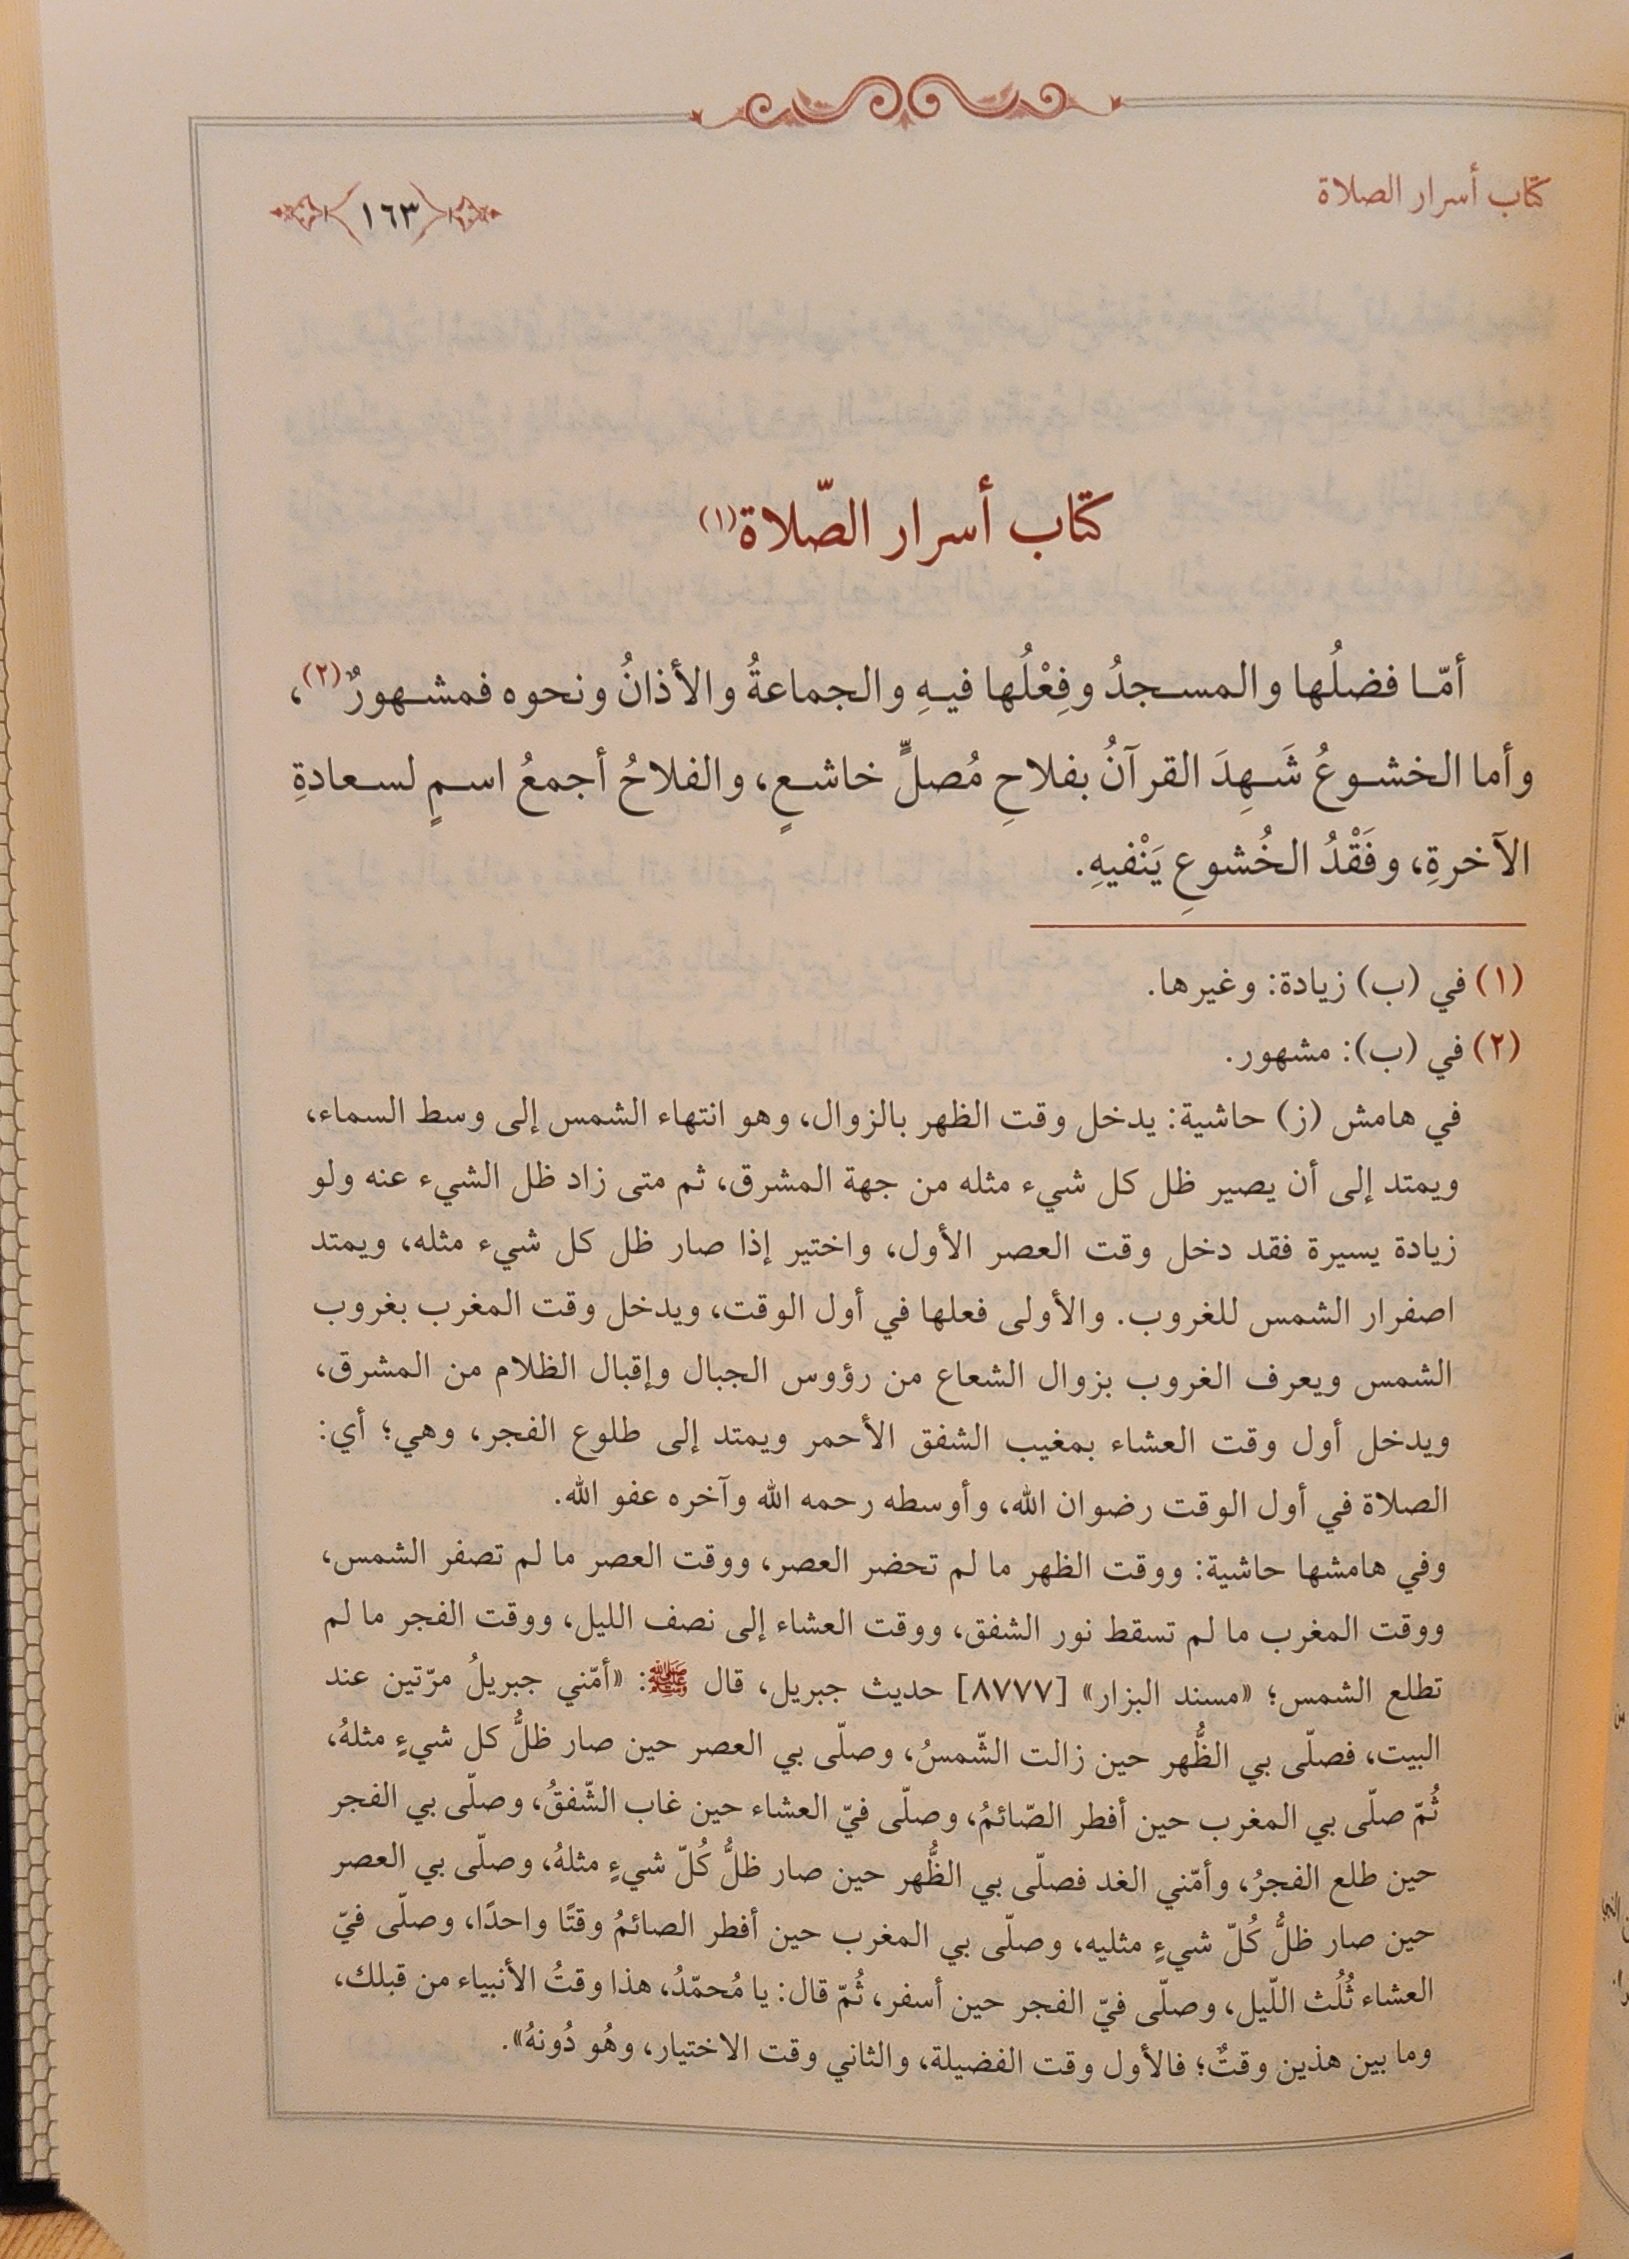 كتاب أسرار الصلاة
١٦٣
كتاب أسرار الصّلاة(١)
أمّا فضلُها والمسجدُ وفِعْلُها فيهِ والجماعةُ والأذانُ ونحوه فمشهورٌ(٢)،
وأما الخشوعُ شَهِدَ القرآنُ بفلاحِ مُصلٍّ خاشعٍ، والفلاحُ أجمعُ اسمٍ لسعادةِ
الآخرةِ، وفَقْدُ الخُشوعِ يَنْفيهِ.
(١) في (ب) زيادة: وغيرها.
(٢) في (ب): مشهور.
في هامش (ز) حاشية: يدخل وقت الظهر بالزوال، وهو انتهاء الشمس إلى وسط السماء،
ويمتد إلى أن يصير ظل كل شيء مثله من جهة المشرق، ثم متى زاد ظل الشيء عنه ولو
زيادة يسيرة فقد دخل وقت العصر الأول، واختير إذا صار ظل كل شيء مثله، ويمتد
اصفرار الشمس للغروب. والأولى فعلها في أول الوقت، ويدخل وقت المغرب بغروب
الشمس ويعرف الغروب بزوال الشعاع من رؤوس الجبال وإقبال الظلام من المشرق،
ويدخل أول وقت العشاء بمغيب الشفق الأحمر ويمتد إلى طلوع الفجر، وهي؛ أي:
الصلاة في أول الوقت رضوان الله، وأوسطه رحمه الله وآخره عفو الله.
وفي هامشها حاشية: ووقت الظهر ما لم تحضر العصر، ووقت العصر ما لم تصفر الشمس،
ووقت المغرب ما لم تسقط نور الشفق، ووقت العشاء إلى نصف الليل، ووقت الفجر ما لم
تطلع الشمس؛ «مسند البزار» [٨٧٧٧] حديث جبريل، قال ﷺ: «أمّني جبريلُ مرّتين عند
البيت، فصلّى بي الظُّهر حين زالت الشّمسُ، وصلّى بي العصر حين صار ظلُّ كل شيءٍ مثلهُ،
ثُمّ صلّى بي المغرب حين أفطر الصّائمُ، وصلّى فيّ العشاء حين غاب الشّفقُ، وصلّى بي الفجر
حين طلع الفجرُ، وأمّني الغد فصلّى بي الظُّهر حين صار ظلُّ كُلّ شيءٍ مثلهُ، وصلّى بي العصر
حين صار ظلُّ كُلّ شيءٍ مثليه، وصلّى بي المغرب حين أفطر الصائمُ وقتًا واحدًا، وصلّى فيّ
العشاء ثُلُث اللّيل، وصلّى فيّ الفجر حين أسفر، ثُمّ قال: يا مُحمّدُ، هذا وقتُ الأنبياء من قبلك،
وما بين هذين وقتٌ؛ فالأول وقت الفضيلة، والثاني وقت الاختيار، وهُو دُونهُ».